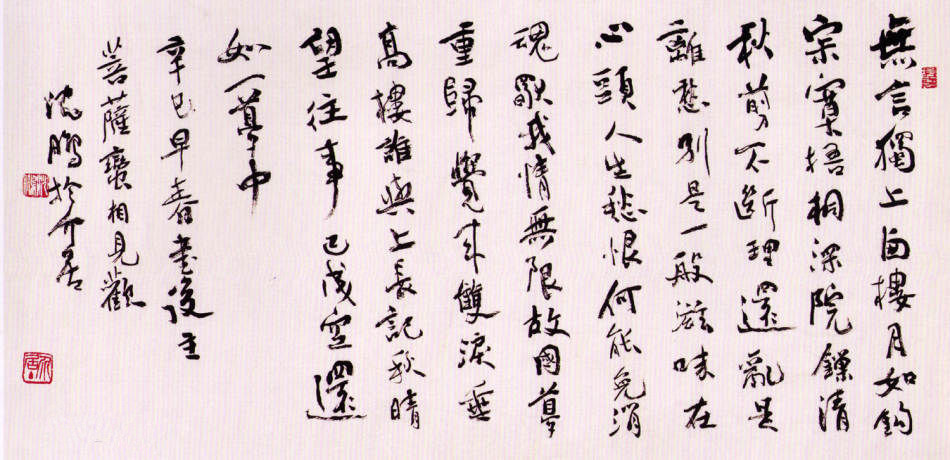 無言獨上西樓月如鈎
寂寞梧桐深院鏁清
秋剪不斷理還亂是
離愁別是一般滋味在
心頭人生愁恨何能免消
魂獨我情無限故國夢
重歸覺來雙淚垂
高樓誰與上長記秋晴
望往事已成空還
如一夢中
辛巳早春書後主
菩薩蠻相見歡
沈鵬於介居